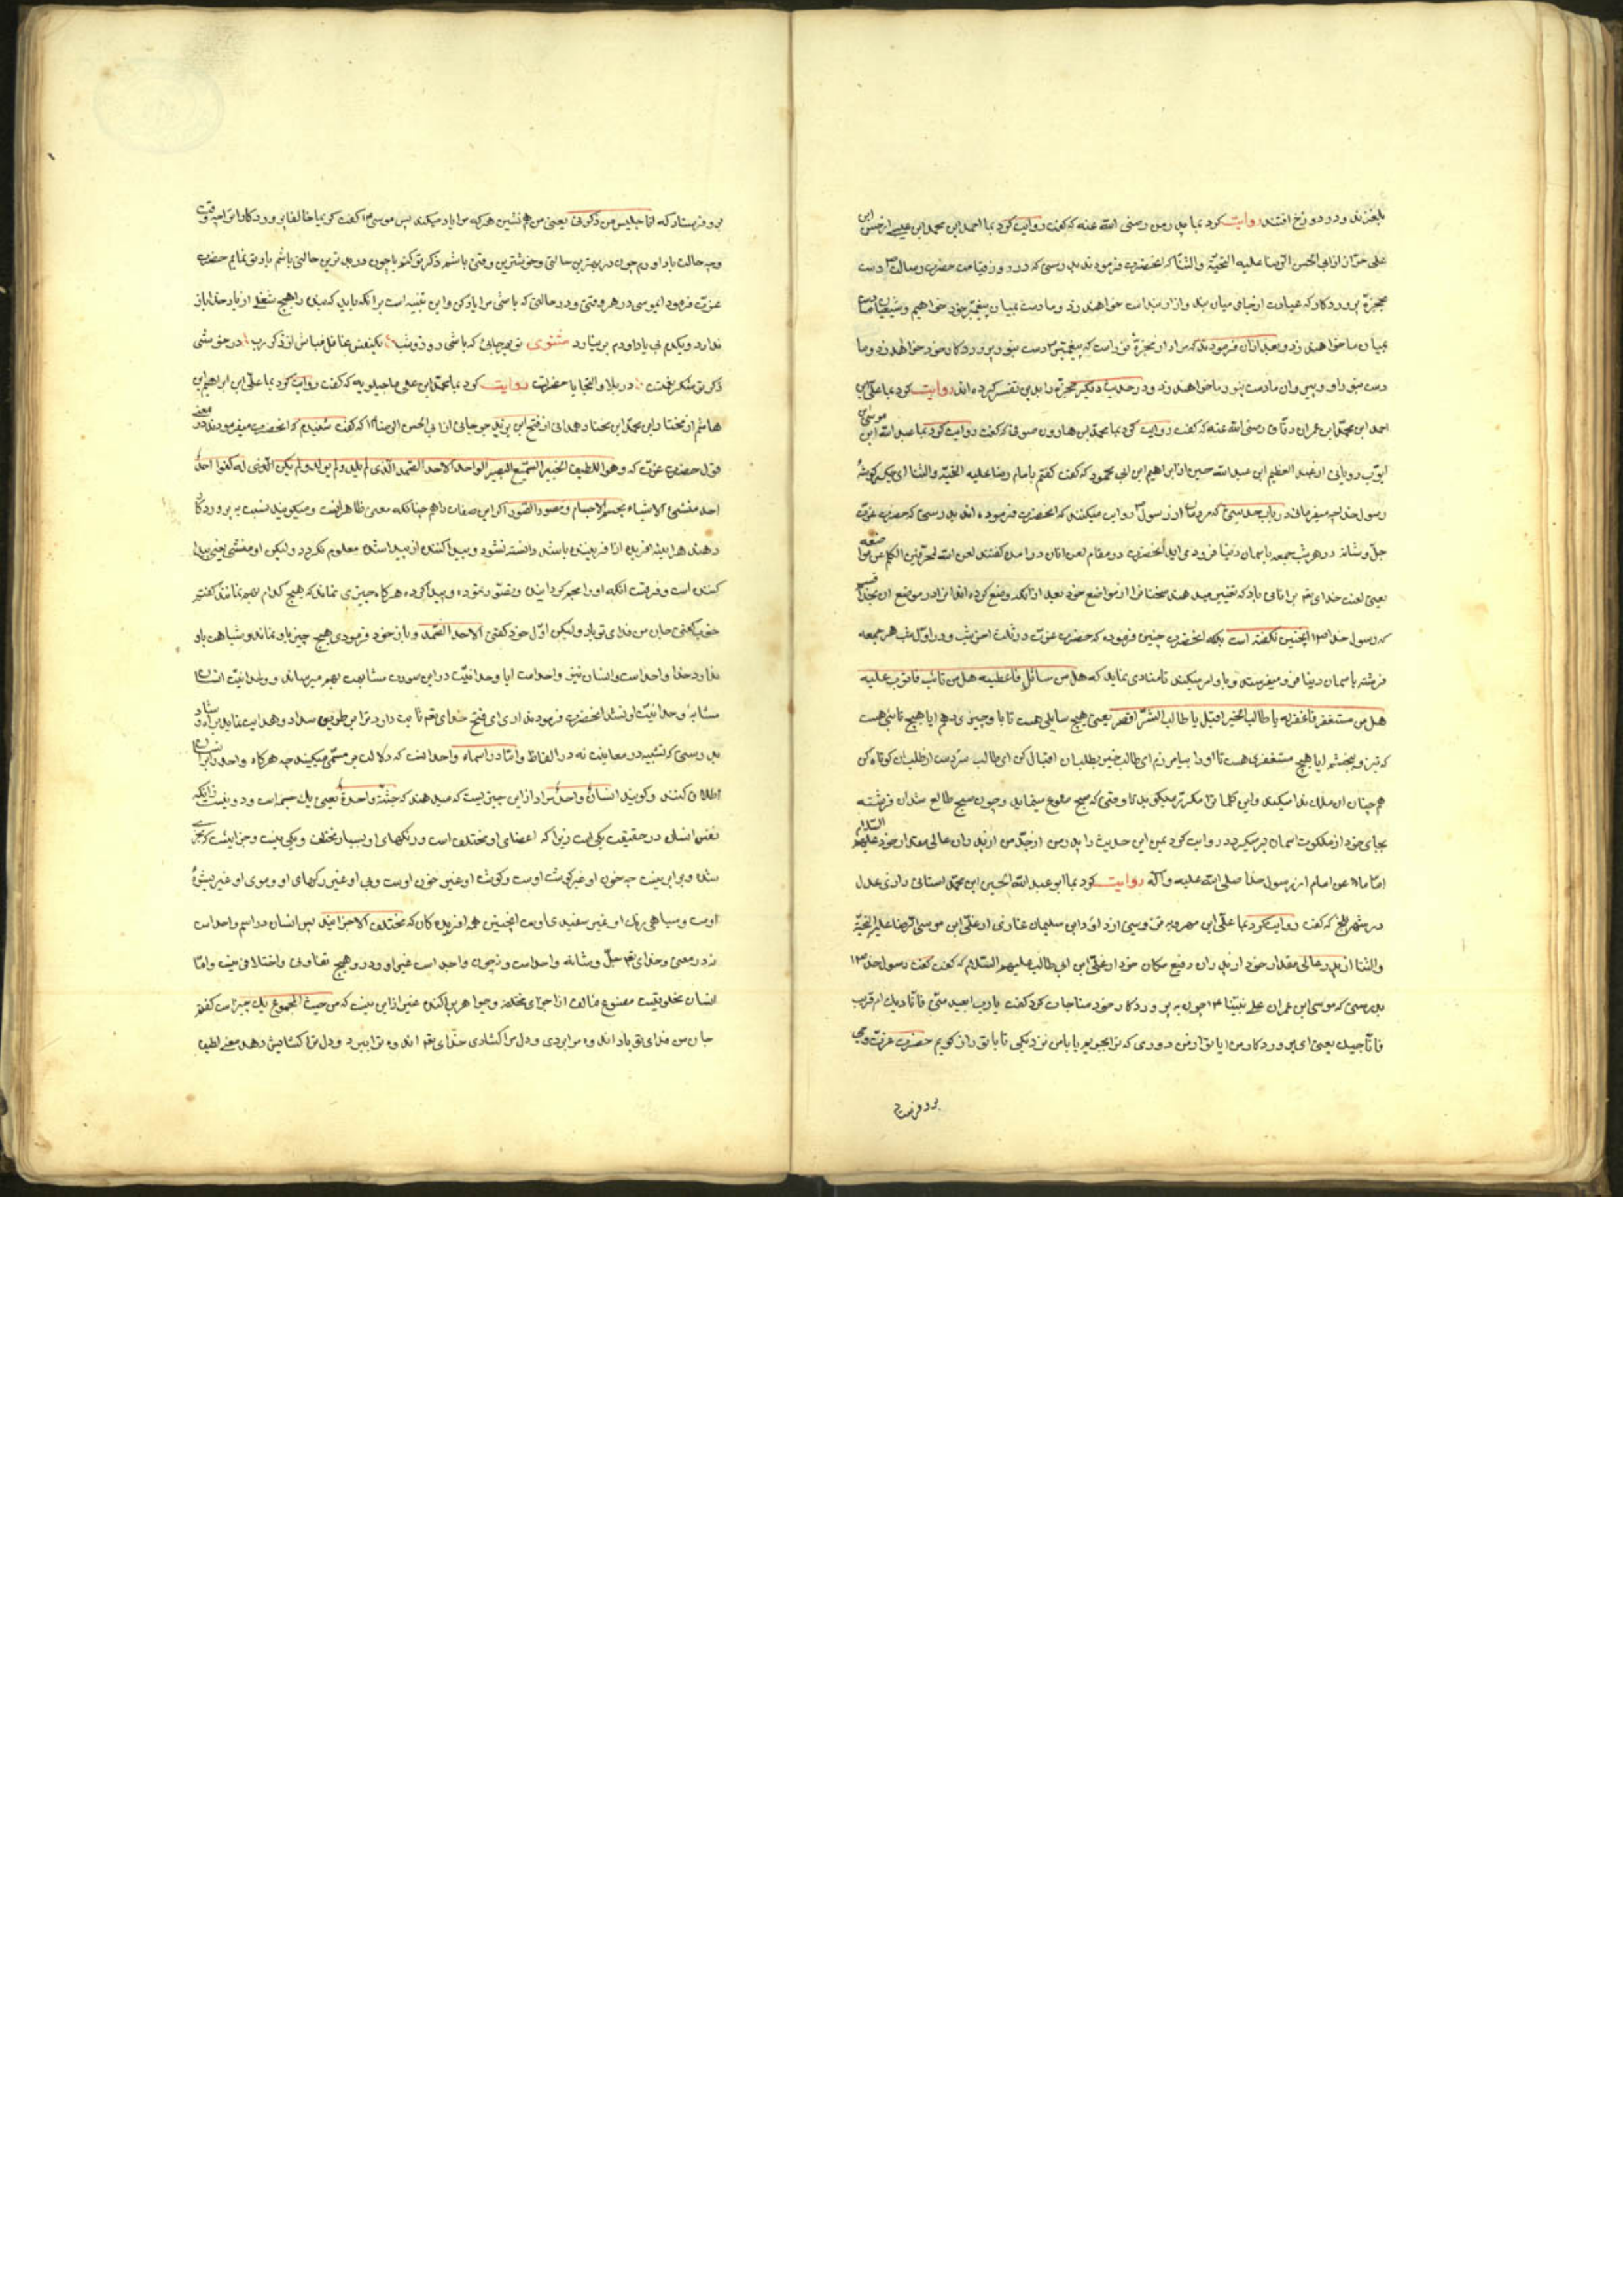 بلغزند و در دوزخ افتند روایت کرد بما پدر من رضی الله عنه که گفت روایت کرد بما احمد ابن محمد ابن عیسی از حسن ابن
علی خزاز از ابی الحسن الرضا علیه التحیّة والثنا که انحضرت فرمودند بدرستی که در روز قیامت حضرت رسالت دست
بحجزهٔ پروردکار که عبارت از میان بند و ازار بند است خواهند زد و ما دست بمیان پیغمبر خود خواهیم و شیعیان ما دست
بمیان ما خواهند زد و بعد ازان فرمودند که مراد از حجزهٔ نور است که پیغمبر دست بنور پروردکار خود خواهد زد و ما
دست بنور او و پیروان ما دست بنور ما خواهند زد و در حدیث دیکر حجزهٔ را بدین تفسیر کرده اند روایت کرد بما علی ابن
احمد ابن محمد ابن عمران دقاق رضی الله عنه که گفت روایت کرد بما محمد ابن هارون صوفی که گفت روایت کرد بما عبد الله ابن موسی
ایوب رویانی از عبد العظیم ابن عبد الله حسین از ابراهیم ابن ابی محمود که گفت کفتم بامام رضا علیه التحیّة والثنا ای جکر کوشهٔ
رسول خدا چه میفرمائی در باب حدیثی که مردمان از رسول روایت میکنند که انحضرت فرموده اند بدرستی که حضرت عزت
جلّ و شانه در هر شب جمعه باسمان دنیا فرود می اید انحضرت در مقام لعن انان در امدن کفتند لعن الله المحرّفین الکلم عن مواضعه
یعنی لعنت خدای تعم بر انانی باد که تغییر میدهند سخنانرا از مواضع خود بعد از انکه وضع کرده اند انرا در موضع ان بخدا قسم
که رسول خدا اینچنین نکفته است بلکه انحضرت چنین فرموده که حضرت عزت در ثلث اخر شب و در اوّل شب هر جمعه
فرشته باسمان دنیا فرو میفرستد و باو امر میکند تا منادی نماید که هل من سائل فاعطیه هل من تائب فاتوب علیه
هل من مستغفر فاغفر له یا طالب الخیر اقبل یا طالب الشرّ اقصر یعنی هیچ سایلی هست تا باو چیزی دهم ایا هیچ تائبی هست
هم چنان ان ملک ندا میکند و این کلماترا مکرر میکوید تا وقتی که صبح طلوع مینماید و چون صبح طالع شد ان فرشته
بجای خود از ملکوت اسمان برمیکردد روایت کرد بمن این حدیث را پدر من از جدّ من از پدران عالی مقدار خود علیهم السّلام
در شهر بلخ که گفت روایت کرد بما علی ابن مهرویه قزوینی از داؤد ابن سلیمان غازی از علی ابن موسی الرضا علیه التحیّة
والثنا از پدر عالی مقدار خود از پدران رفیع مکان خود از علی ابن ابی طالب علیهم السّلام که گفت گفت رسول خدا
بدرستی که موسی ابن عمران علی نبیّنا چون به پروردکار خود مناجات کرد گفت یا رب ابعید منّی فانادیک ام قریب
فاناجیک یعنی ای پروردکار من ایا تو از من دوری که ترا بجویم یا با من نزدیکی تا با تو راز کویم حضرت عزت وحی
برو فرستاد
برو فرستاد که انا جلیس من ذکرنی یعنی من هم نشین هر که مرا یاد میکند پس موسی گفت کریما خالقا پروردکارا ترا چه وقت
و چه حالت یاد اورم چون در بهترین حالتی و خوشترین وقتی باشم ذکر تو کنم یا چون در بدترین حالتی باشم یاد تو نمایم حضرت
عزت فرمود ایموسی در هر وقتی و در حالتی که باشی مرا یاد کن و این تنبیه است بر انکه باید که بنده را هیچ شغلی از یاد خدا باز
ندارد و یکدم بی یاد او دم بر نیارد مثنوی تو بهر جائی که باشی روز و شب یکنفس غافل مباش از ذکر رب در خوشی
ذکر تو شکر نعمت در بلاو التجا با حضرت روایت کرد بما محمد ابن علی ماجیلویه که گفت روایت کرد بما علی ابن ابراهیم ابن
هاشم از مختار ابن محمد ابن مختار همدانی از فتح ابن یزید جرجانی از ابی الحسن الرضا که گفت شنیدم که انحضرت میفرمودند در معنی
قول حضرت عزت که و هو اللطیف الخبیر السّمیع البصیر الواحد الاحد الصّمد الّذی لم یلد و لم یولد و لم یکن الّذی له کفوا احدٌ
احد منشئ الاشیاء مجسّم الاجسام و مصوّر الصّور اکر این صفات را هم چنانکه معنی ظاهر انست و میکویند نسبت به پروردکار
دهند هراینه افریده از افریننده باشد دانسته نشود و پیدا کننده از پیدا شده معلوم نکردد و لیکن او منشی یعنی پیدا
خوب کفتی جان من فدای تو باد و لیکن اوّل خود کفتی الاحد الصّمد و باز خود فرمودی هیچ چیز باو نماند و شباهت باو
ندارد خدا واحد است و انسان نیز واحد است ایا وحدانیت در این صورت مشابهت بهم میرساند و وحدانیت انسان
مشابهٔ وحدانیت او نشد انحضرت فرمودند ای فتح خدای تعم ثابت دارد ترا بر طریق سداد و هدایت نماید براه رشاد
بدرستی که تشبیه در معانیست نه در الفاظ و امّا در اسماء واحد است که دلالت بر مسمّی میکند چه هرکاه واحد را بر انسان
اطلاق کنند و کویند انسانٌ واحدٌ مراد از این چیزیست که میدهند که جثّة واحدةٌ یعنی یک جسم است و دو نیست زانکه
نفس انسان در حقیقت یکی نیست زیرا که اعضای او مختلف است و رنکهای او بسیار مختلف و یکی نیست و جزایست که
شده و برابر نیست چه خون او غیر کوشت اوست و کوشت او غیر خون اوست و پی او غیر رکهای او و موی او غیر بشرهٔ
اوست و سیاهی رنک او غیر سفیدی اوست اینچنین همه افریده کان که مختلف الاجزایند پس انسان در اسم واحد است
نه در معنی و خدای تعم جلّ و شانه واحد است و نیچون واحد است غیر او و در و هیچ تفاوتی و اختلافی نیست و امّا
انسان مخلوقیست مصنوع مؤلف از اجزای مختلفه و جواهر پراکنده غیر از این نیست که من حیث المجموع یک چیز است کفتم
جان من فدای تو باد اندوه مرا بردی و دل مرا کشادی خدای تعم اندوه ترا ببرد و دل ترا کشایش دهد معنی لطیف